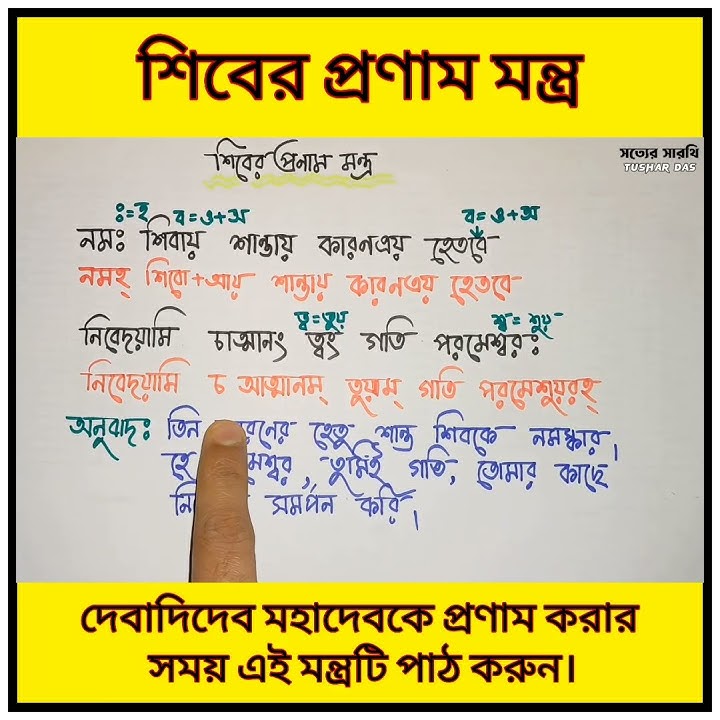 শিবের প্রণাম মন্ত্র
সত্যের সারথি
TUSHAR DAS
শিবের প্রনাম মন্ত্র
ঃ=হ্ ব=ও+অ ব=ও+অ
নমঃ শিবায় শান্তায় কারনত্রয় হেতবে
নমহ্ শিবো+আয় শান্তায় কারনত্রয় হেতবে
ত্ব=তুয় শ্ব=শুয়
নিবেদয়ামি চাত্মানং ত্বং গতি পরমেশ্বরঃ
নিবেদয়ামি চ আত্মানম্ তুয়াম্ গতি পরমেশুয়রহ্
অনুবাদঃ তিন হেতু শান্ত শিবকে নমস্কার।
হে তুমিই গতি, তোমার কাছে
সমর্পন করি।
দেবাদিদেব মহাদেবকে প্রণাম করার
সময় এই মন্ত্রটি পাঠ করুন।